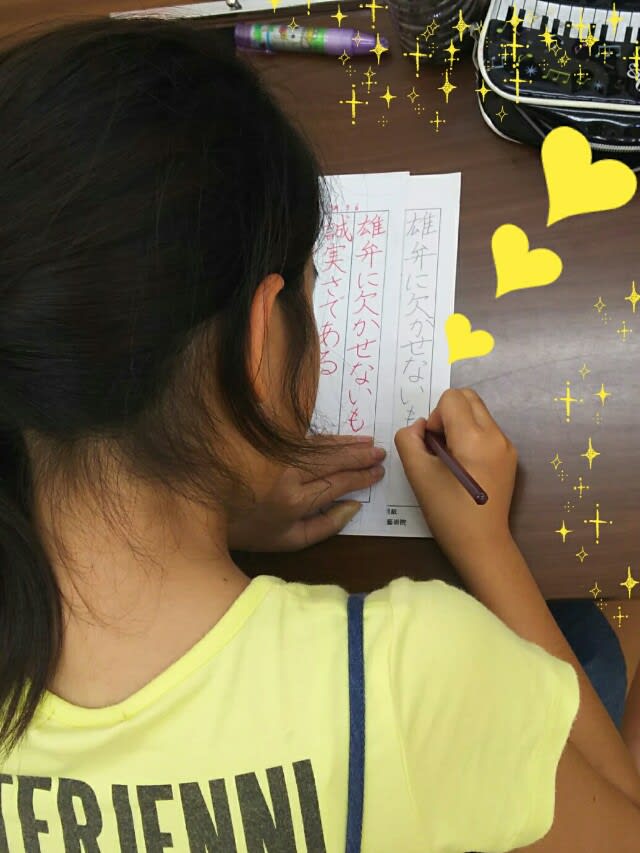 雄弁に欠かせないも
雄弁に欠かせないも
誠実さである
TERJENNI